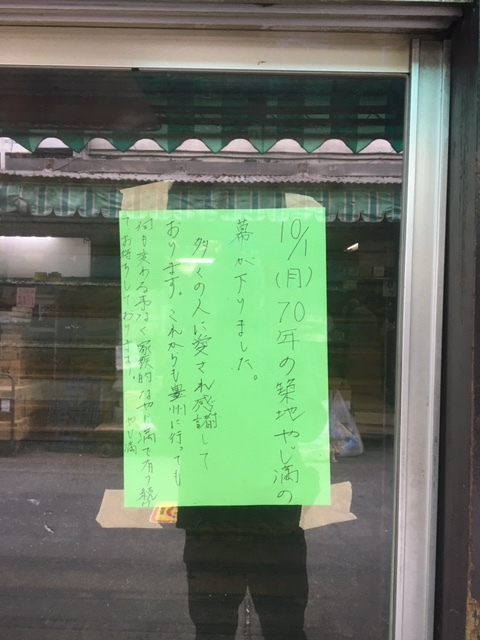 10/1(月)70年の築地やじ満の
幕が下りました。
多くの人に愛され感謝して
おります。これからも豊州に行っても
何も変わる事なく家族的なやじ満で有り続け
てお待ちしております。 やじ満